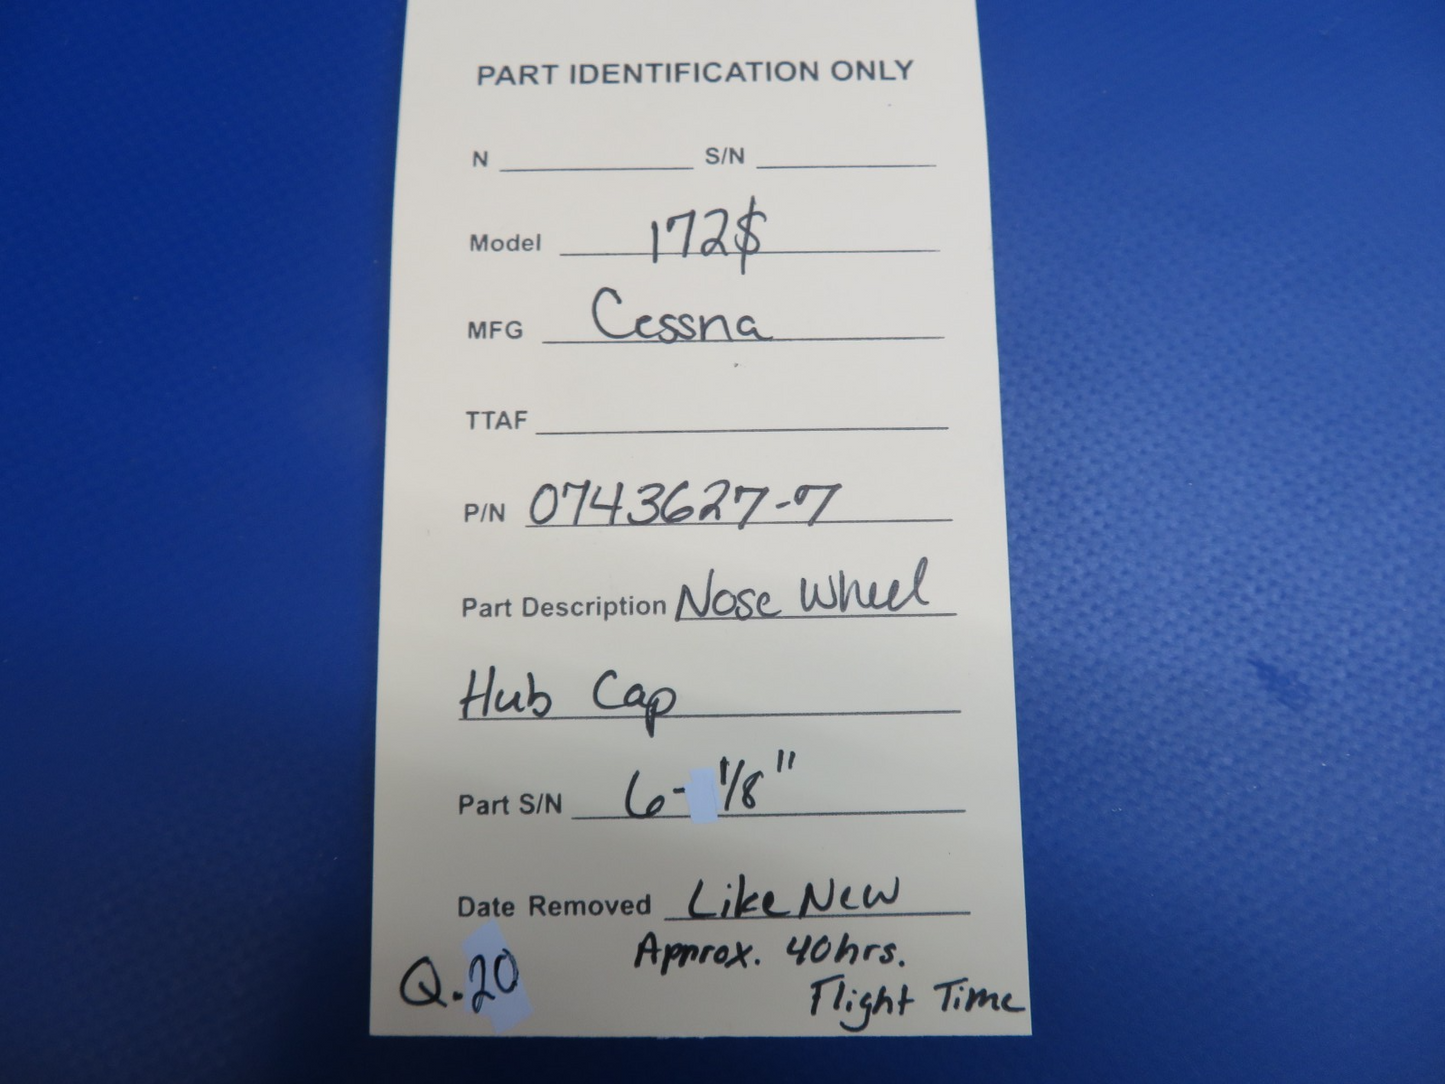 PART IDENTIFICATION ONLY
N S/N
Model 172$
MFG Cessna
TTAF
P/N 0743627-7
Part Description Nose Wheel
Hub Cap
Part S/N 6-1/8"
Date Removed Like New
Approx. 40hrs.
Q.20
Flight Time